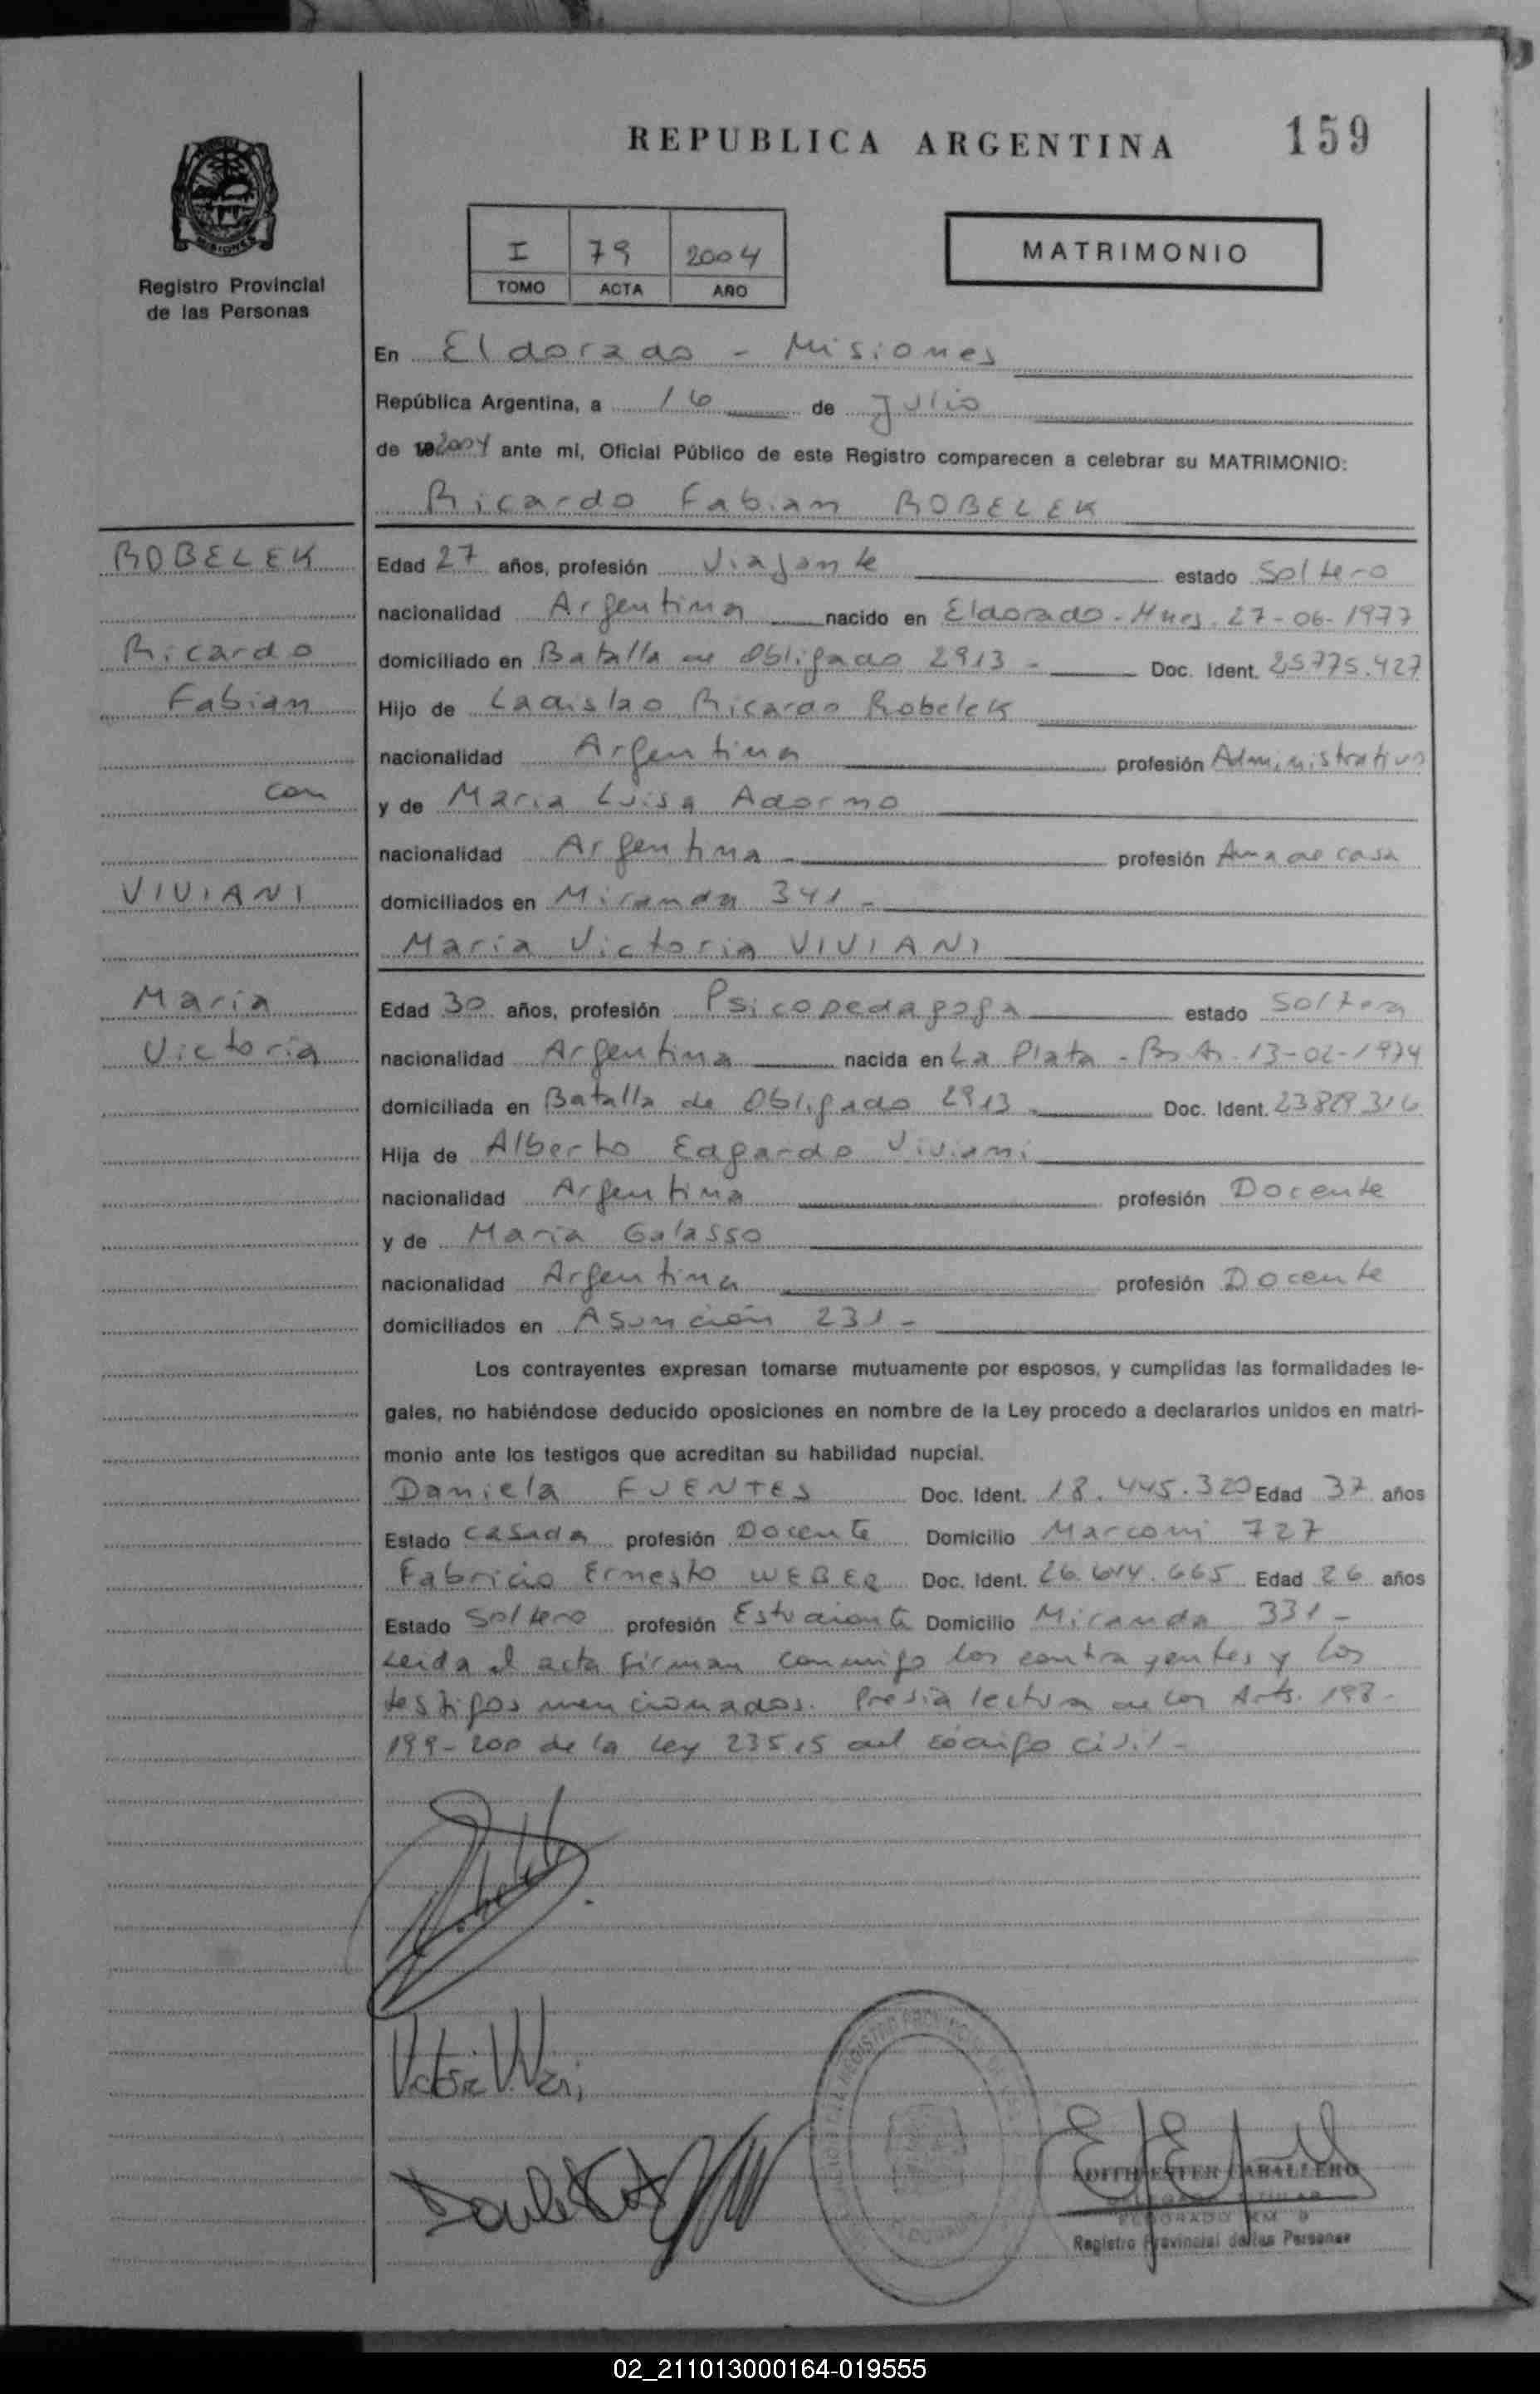 REPUBLICA ARGENTINA
159
MISIONES
Registro Provincial
de las Personas
I 79 2004
TOMO ACTA AÑO
MATRIMONIO
En Eldorado - Misiones
República Argentina, a 16 de Julio
de 19 2004 ante mi, Oficial Público de este Registro comparecen a celebrar su MATRIMONIO:
Ricardo Fabian ROBELEK
ROBELEK
Ricardo
Fabian
con
VIVIANI
Maria
Victoria
Edad 27 años, profesión Viajante estado Soltero
nacionalidad Argentina nacido en Eldorado - Mnes. 27-06-1977
domiciliado en Batalla de Obligado 2913 - Doc. Ident. 25775.427
Hijo de Ladislao Ricardo Robelek
nacionalidad Argentina profesión Administrativo
y de Maria Luisa Adorno
nacionalidad Argentina - profesión Ama de casa
domiciliados en Miranda 341 -
María Victoria VIVIANI
Edad 30 años, profesión Psicopedagoga estado Soltera
nacionalidad Argentina nacida en La Plata - Bs As. 13-02-1974
domiciliada en Batalla de Obligado 2913 - Doc. Ident.
Hija de Alberto Edgardo Viviani
nacionalidad Argentina profesión Docente
y de María Galasso
nacionalidad Argentina profesión Docente
domiciliados en Asunción 231 -
Los contrayentes expresan tomarse mutuamente por esposos, y cumplidas las formalidades le-
gales, no habiéndose deducido oposiciones en nombre de la Ley procedo a declararlos unidos en matri-
monio ante los testigos que acreditan su habilidad nupcial.
Daniela FUENTES Doc. Ident. 18.445.320 Edad 37 años
Estado Casada profesión Docente Domicilio Marconi 727
Fabricio Ernesto WEBER Doc. Ident. Edad 26 años
Estado Soltero profesión Estudiante Domicilio Miranda 331 -
Leida el acta firman conmigo los contrayentes y los
testigos mencionados. Previa lectura de los Arts. 198-
199-200 de la Ley 23515 del código civil -
EDITH ESTER CABALLERO
ELDORADO KM 9
Registro Provincial de las Personas
02_211013000164-019555